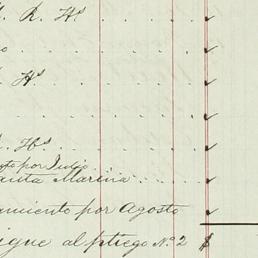 R. Hs
Hs
Hs
por Julio
Santa Marina
amiento por Agosto
sigue al pliego No. 2 $